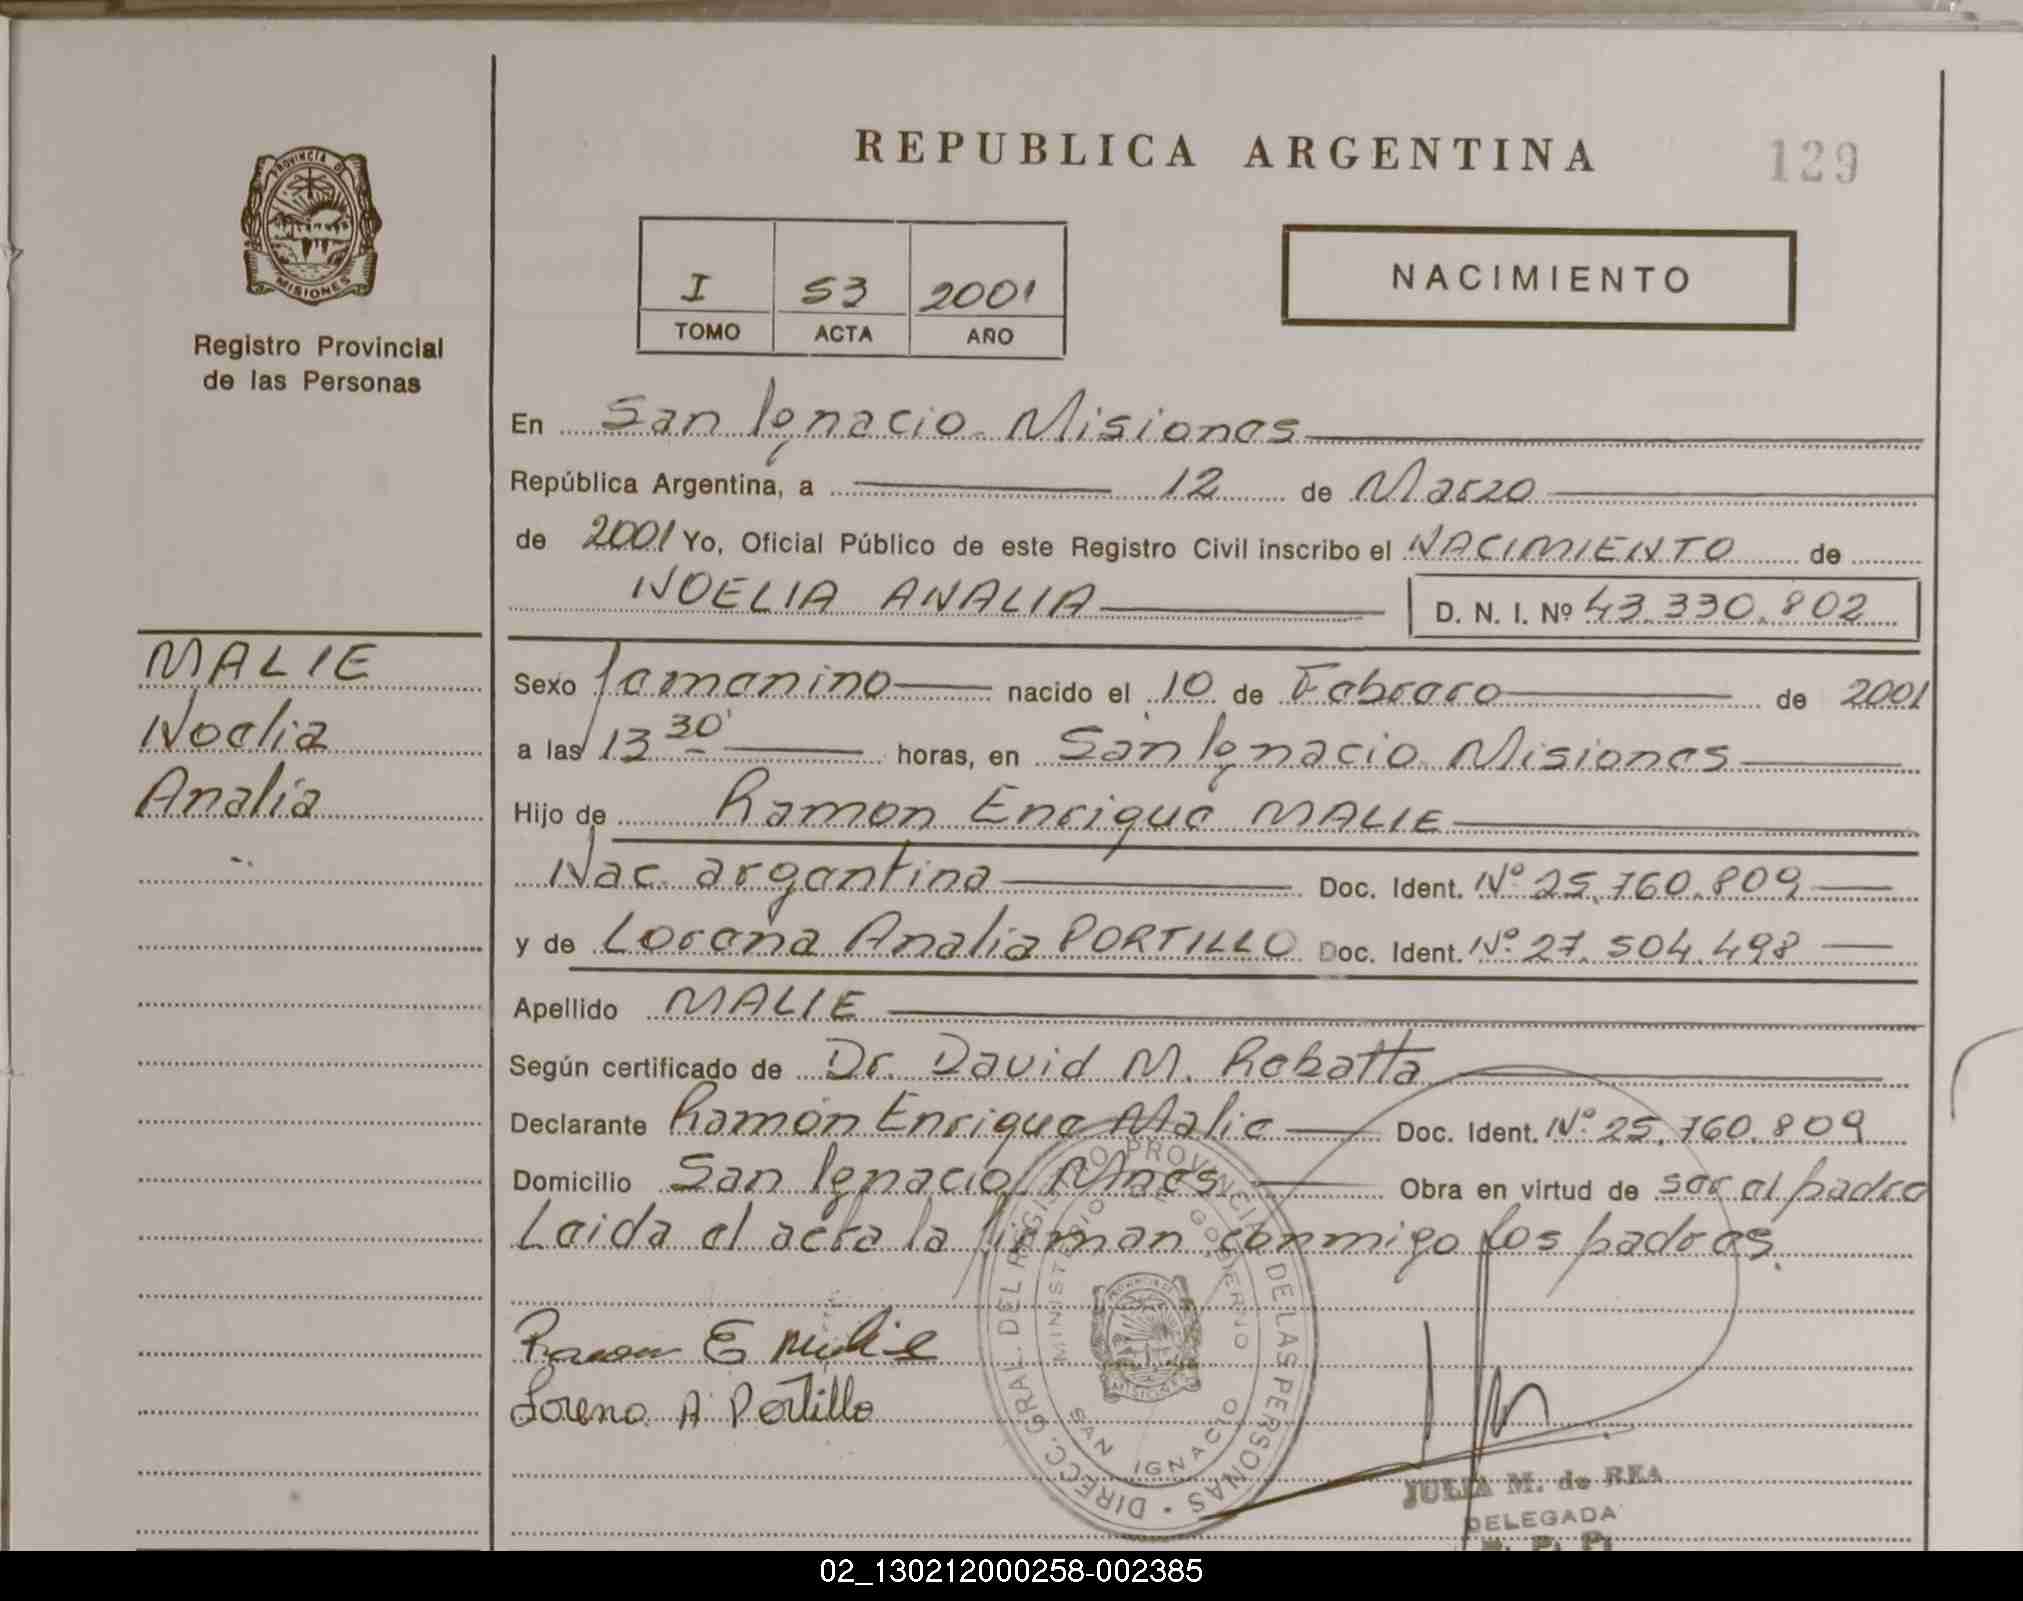 REPUBLICA ARGENTINA
129
PROVINCIA DE
MISIONES
Registro Provincial
de las Personas
I 53 2001
TOMO ACTA AÑO
NACIMIENTO
En San Ignacio Misiones
República Argentina, a 12 de Marzo
de 2001 Yo, Oficial Público de este Registro Civil inscribo el NACIMIENTO de
NOELIA ANALIA D. N. I. Nº 43.330.802
MALIE
Noelia
Analía
Sexo femenino nacido el 10 de Febrero de 2001
a las 13 30' horas, en San Ignacio Misiones
Hijo de Ramon Enrique MALIE
Nac. argentina Doc. Ident. Nº 25.760.809
y de Lorena Analía PORTILLO Doc. Ident. Nº 27.504.498
Apellido MALIE
Según certificado de Dr. David M. Rebatta
Declarante Ramón Enrique Malie Doc. Ident. Nº 25.760.809
Domicilio San Ignacio Mnes. Obra en virtud de ser el padre
Leida el acta la firman conmigo los padres.
Ramon E Malie
Lorena A Portillo
DIRECC. GRAL. DEL REGISTRO PROVINCIAL DE LAS PERSONAS
MINISTERIO DE GOBIERNO
MISIONES
SAN IGNACIO
JULIA M. de REA
DELEGADA
02_130212000258-002385